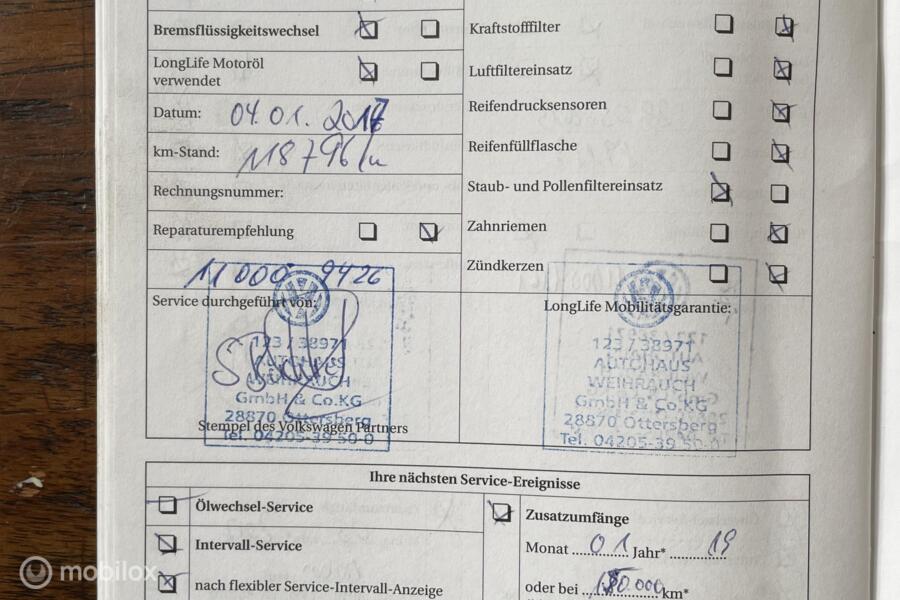 Bremsflüssigkeitswechsel
LongLife Motoröl
verwendet
Datum: 04.01.2017
km-Stand: 118796 km
Rechnungsnummer:
Reparaturempfehlung
11000 9426
Service durchgeführt von:
123 / 38971
AUTOHAUS
WEIHRAUCH
GmbH & Co.KG
28870 Ottersberg
Stempel des Volkswagen Partners
Tel. 04205-39 50-0
Kraftstofffilter
Luftfiltereinsatz
Reifendrucksensoren
Reifenfüllflasche
Staub- und Pollenfiltereinsatz
Zahnriemen
Zündkerzen
LongLife Mobilitätsgarantie:
123 / 38971
AUTOHAUS
WEIHRAUCH
GmbH & Co.KG
28870 Ottersberg
Tel. 04205-39 50-0
Ihre nächsten Service-Ereignisse
Ölwechsel-Service
Intervall-Service
nach flexibler Service-Intervall-Anzeige
Zusatzumfänge
Monat 01 Jahr* 19
oder bei 180.000 km*
mobilox